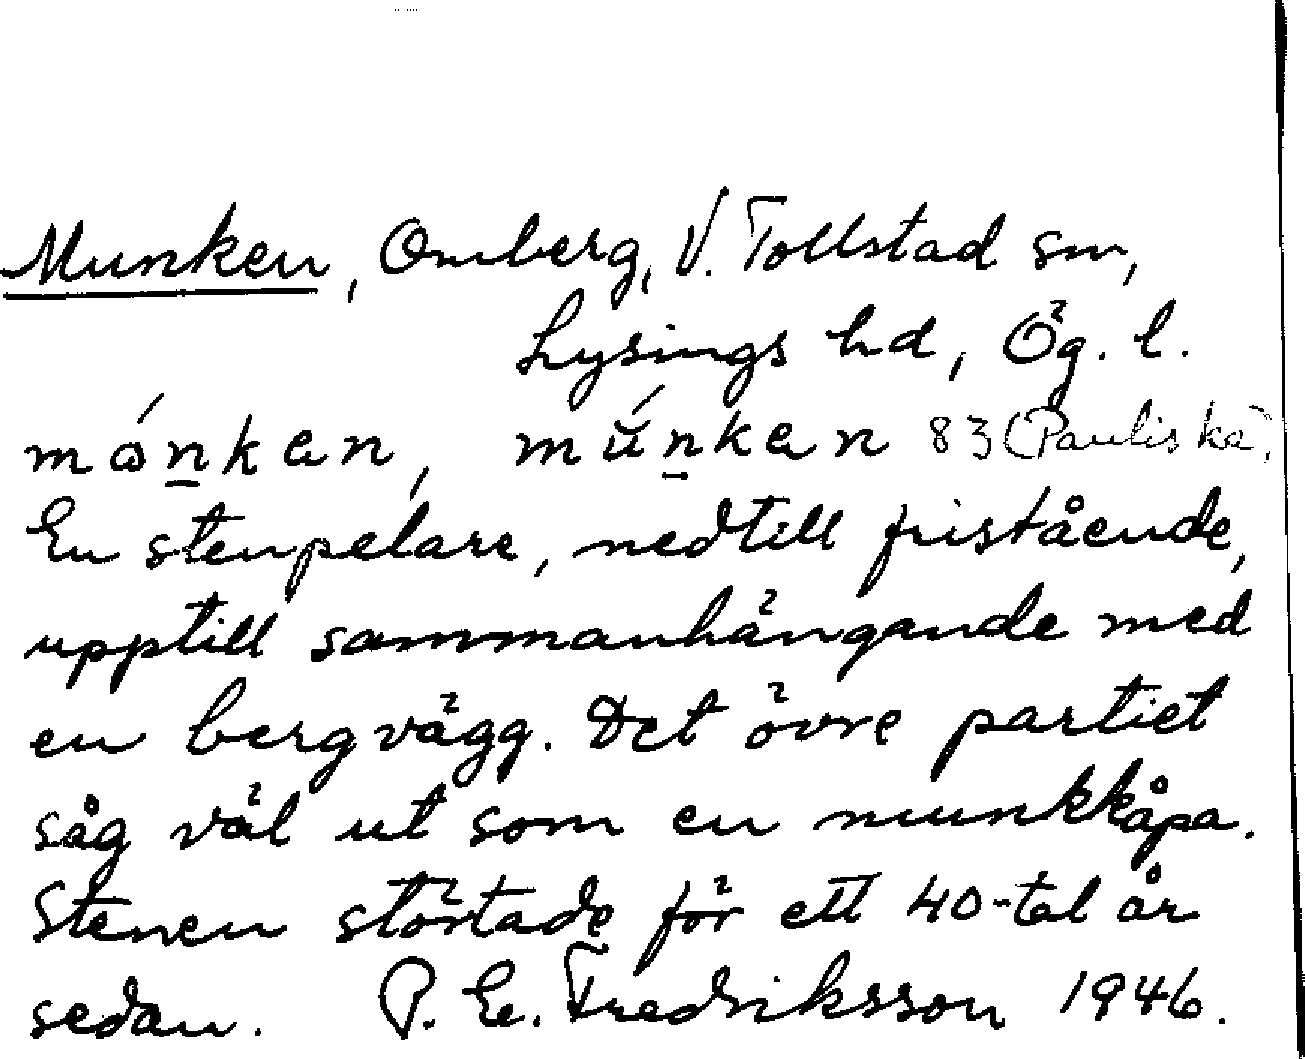 Munken, Omberg, V. Tollstad sn,
Lysings hd, Ög. l.
mónkan, múnkan 83 (Pauliska).
En stenpelare, nedtill fristående,
upptill sammanhängande med
en bergvägg. Det övre partiet
såg väl ut som en munkkåpa.
Stenen störtade för ett 40-tal år
sedan. P. E. Fredriksson 1946.